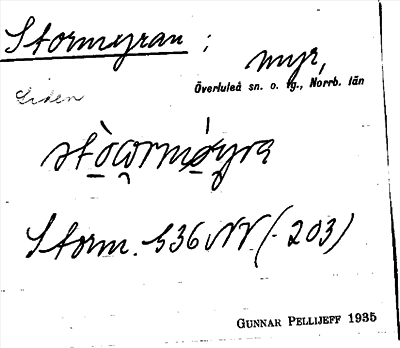 Stormyran ; myr,
Överluleå sn. o. tg., Norrb. län
Liden
Storm. 536 NV (- 203)
GUNNAR PELLIJEFF 1935